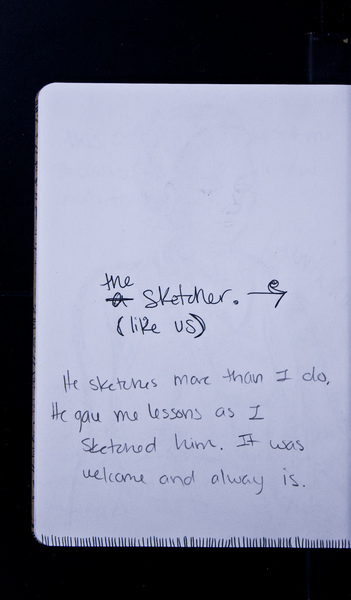 the
a sketcher.
(like us)
He sketches more than I do.
He gave me lessons as I
sketched him. It was
welcome and alway is.